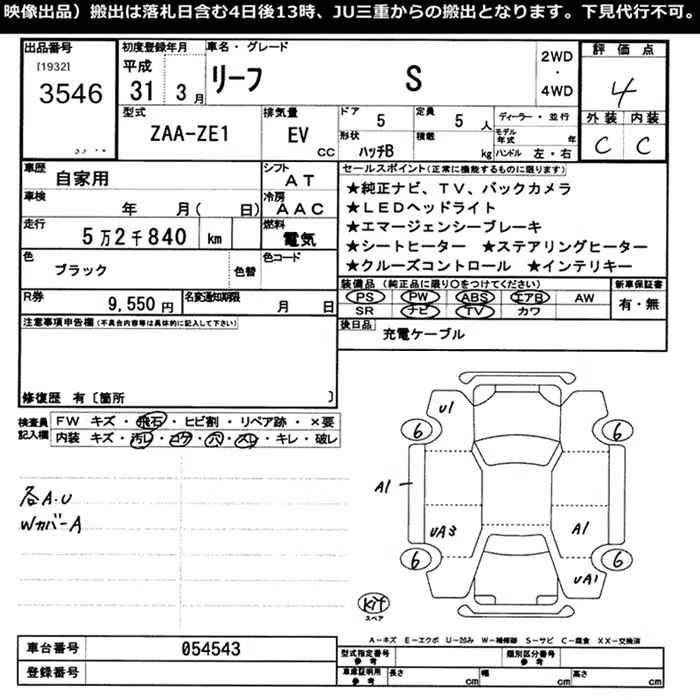 映像出品）搬出は落札日含む4日後13時、JU三重からの搬出となります。下見代行不可。
出品番号 初度登録年月 車名・グレード 評価点
[1932] 平成 2WD
3546 31 3月 リーフ S ・ 4
4WD
型式 排気量 ドア 5 定員 5人 ディーラー・並行 外装 内装
ZAA-ZE1 EV cc 形状 ハッチB 積載 kg モデル年式 年 C C
ハンドル 左・右
車歴 自家用 シフト AT セールスポイント(正常に機能するものに限ります)
車検 年 月( 日) 冷房 AAC ★純正ナビ、TV、バックカメラ
★LEDヘッドライト
走行 5万2千840 km 燃料 電気 ★エマージェンシーブレーキ
★シートヒーター ★ステアリングヒーター
色 ブラック 色替 色コード ★クルーズコントロール ★インテリキー
装備品（純正品に限り○をつけてください） 新車保証書
R券 9,550円 名変通知期限 月 日 PS PW ABS エアB AW 有・無
SR ナビ TV カワ
注意事項申告欄(不具合内容等は具体的に記入して下さい) 後日品 充電ケーブル
修復歴 有〔箇所 〕
検査員 FW キズ・飛石・ヒビ割・リペア跡・×要
記入欄 内装 キズ・汚レ・コゲ・穴・スレ・キレ・破レ
U1
6 6
A1
各A.U
WカバーA
UA3 A1
6 6
UA1
kit
スペア
A-キズ E-エクボ U-凹み W-補修跡 S-サビ C-腐食 XX-交換済
車台番号 054543 型式指定番号 参考 類別区分番号 参考
登録番号 車庫証明用 参考 長さ cm 幅 cm 高さ cm